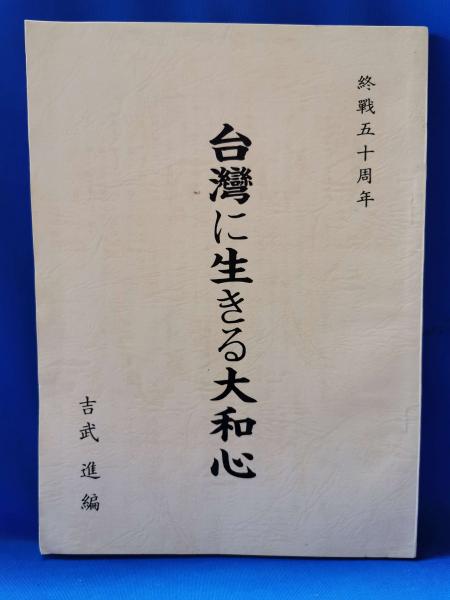 終戰五十周年
台灣に生きる大和心
吉武 進 編